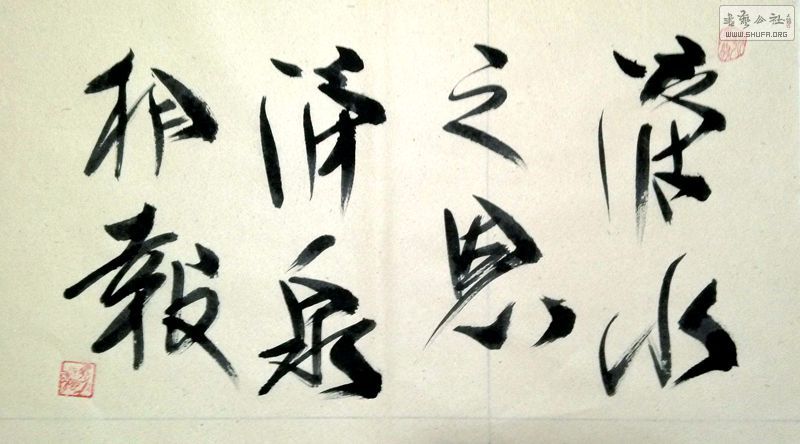 滴水
之恩
涌泉
相報
書藝公社
WWW.SHUFA.ORG